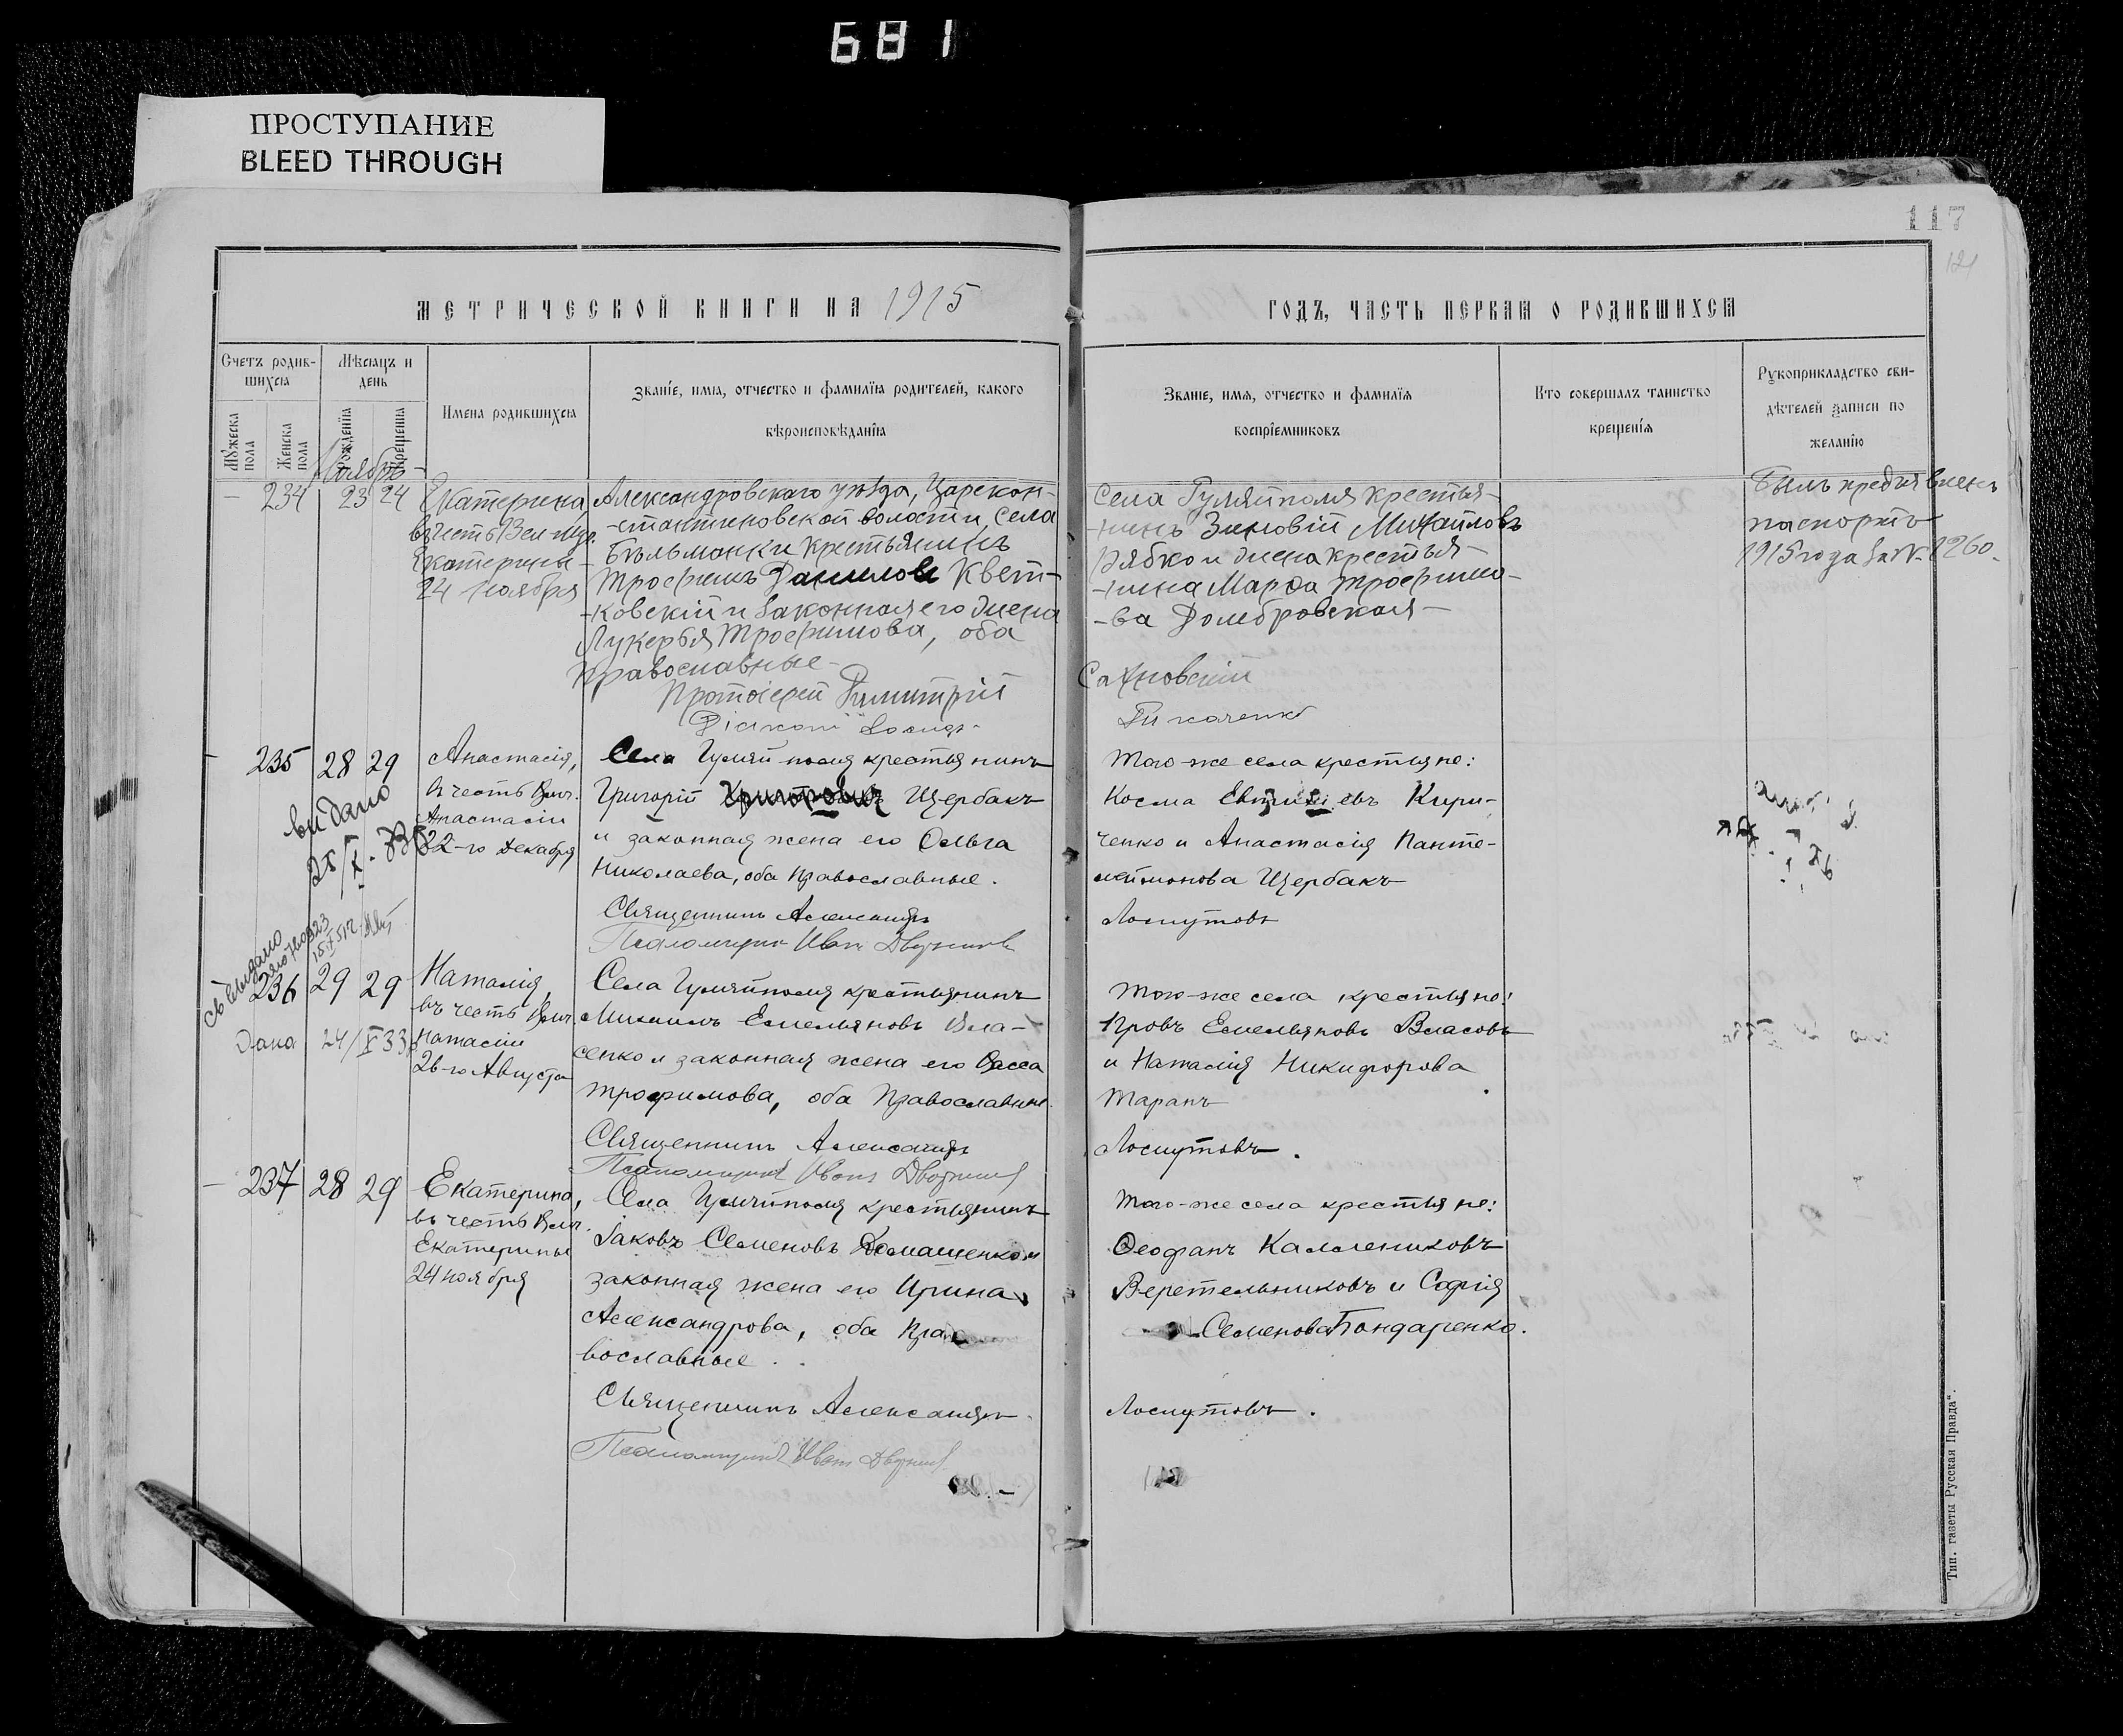 681
ПРОСТУПАНИЕ
BLEED THROUGH
117
121
МЕТРИЧЕСКОЙ КНИГИ НА 1915
ГОДЪ, ЧАСТЬ ПЕРВАЯ О РОДИВШИХСЯ
Счетъ родив-
шихся
Мѣсяцъ и
день
Мужеска пола
Женска пола
Рожденія
Крещенія
Имена родившихся
Званіе, имя, отчество и фамилія родителей, какого
вѣроисповѣданія
Званіе, имя, отчество и фамилія
воспріемниковъ
Кто совершалъ таинство
крещенія
Рукоприкладство сви-
дѣтелей записи по
желанію
Ноябрь
234 23 24
Екатерина,
въ честь Вел. муч.
Екатерины
24 Ноября
Александровскаго уѣзда, Царекон-
-стантиновской волости, села
Бѣльманки крестьянинъ
Трофимъ Даниловъ Квет-
-ковскій и законная его жена
Лукерья Трофимова, оба
православные
Протоіерей Димитрій
Діаконъ
Села Гуляйполя крестья-
-нинъ Зиновій Михайловъ
Рябко и жена крестья-
-нина Марфа Трофимо-
-ва Домбровская
Сахновскій
Ткаченко
Былъ предъявленъ
паспортъ
1915 года за № 1260.
235 28 29
Анастасія,
въ честь Влмч.
Анастасіи
22-го Декабря
видано
Села Гуляй-поля крестьянинъ
Григорій Щербакъ
и законная жена его Ольга
Николаева, оба православные.
Священникъ Александръ
Псаломщикъ Иванъ Дворников
Того-же села крестьяне:
Косма Кири-
ченко и Анастасія Панте-
леймонова Щербакъ
Лоскутовъ
236 29 29
Дана 24/X 33
Наталія,
въ честь Влмч.
Наталіи
26-го Августа
Села Гуляйполя крестьянинъ
Михаилъ Емельяновъ Вла-
сенко и законная жена его Васса
Трофимова, оба Православные.
Священникъ Александръ
Псаломщикъ Иванъ Дворников
Того-же села крестьяне:
Провъ Емельяновъ Власовъ
и Наталія Никифорова
Таранъ
Лоскутовъ.
237 28 29
Екатерина,
въ честь Влмч.
Екатерины
24 ноября
Села Гуляйполя крестьянинъ
Іаковъ Семеновъ Домашенко и
законная жена его Ирина
Александрова, оба Пра-
вославные.
Священникъ Александръ
Псаломщикъ Иванъ Дворников
Того-же села крестьяне:
Ѳеофанъ Каллениковъ
Веретельниковъ и Софія
Семенова Бондаренко.
Лоскутовъ.
Тип. газеты Русская Правда".